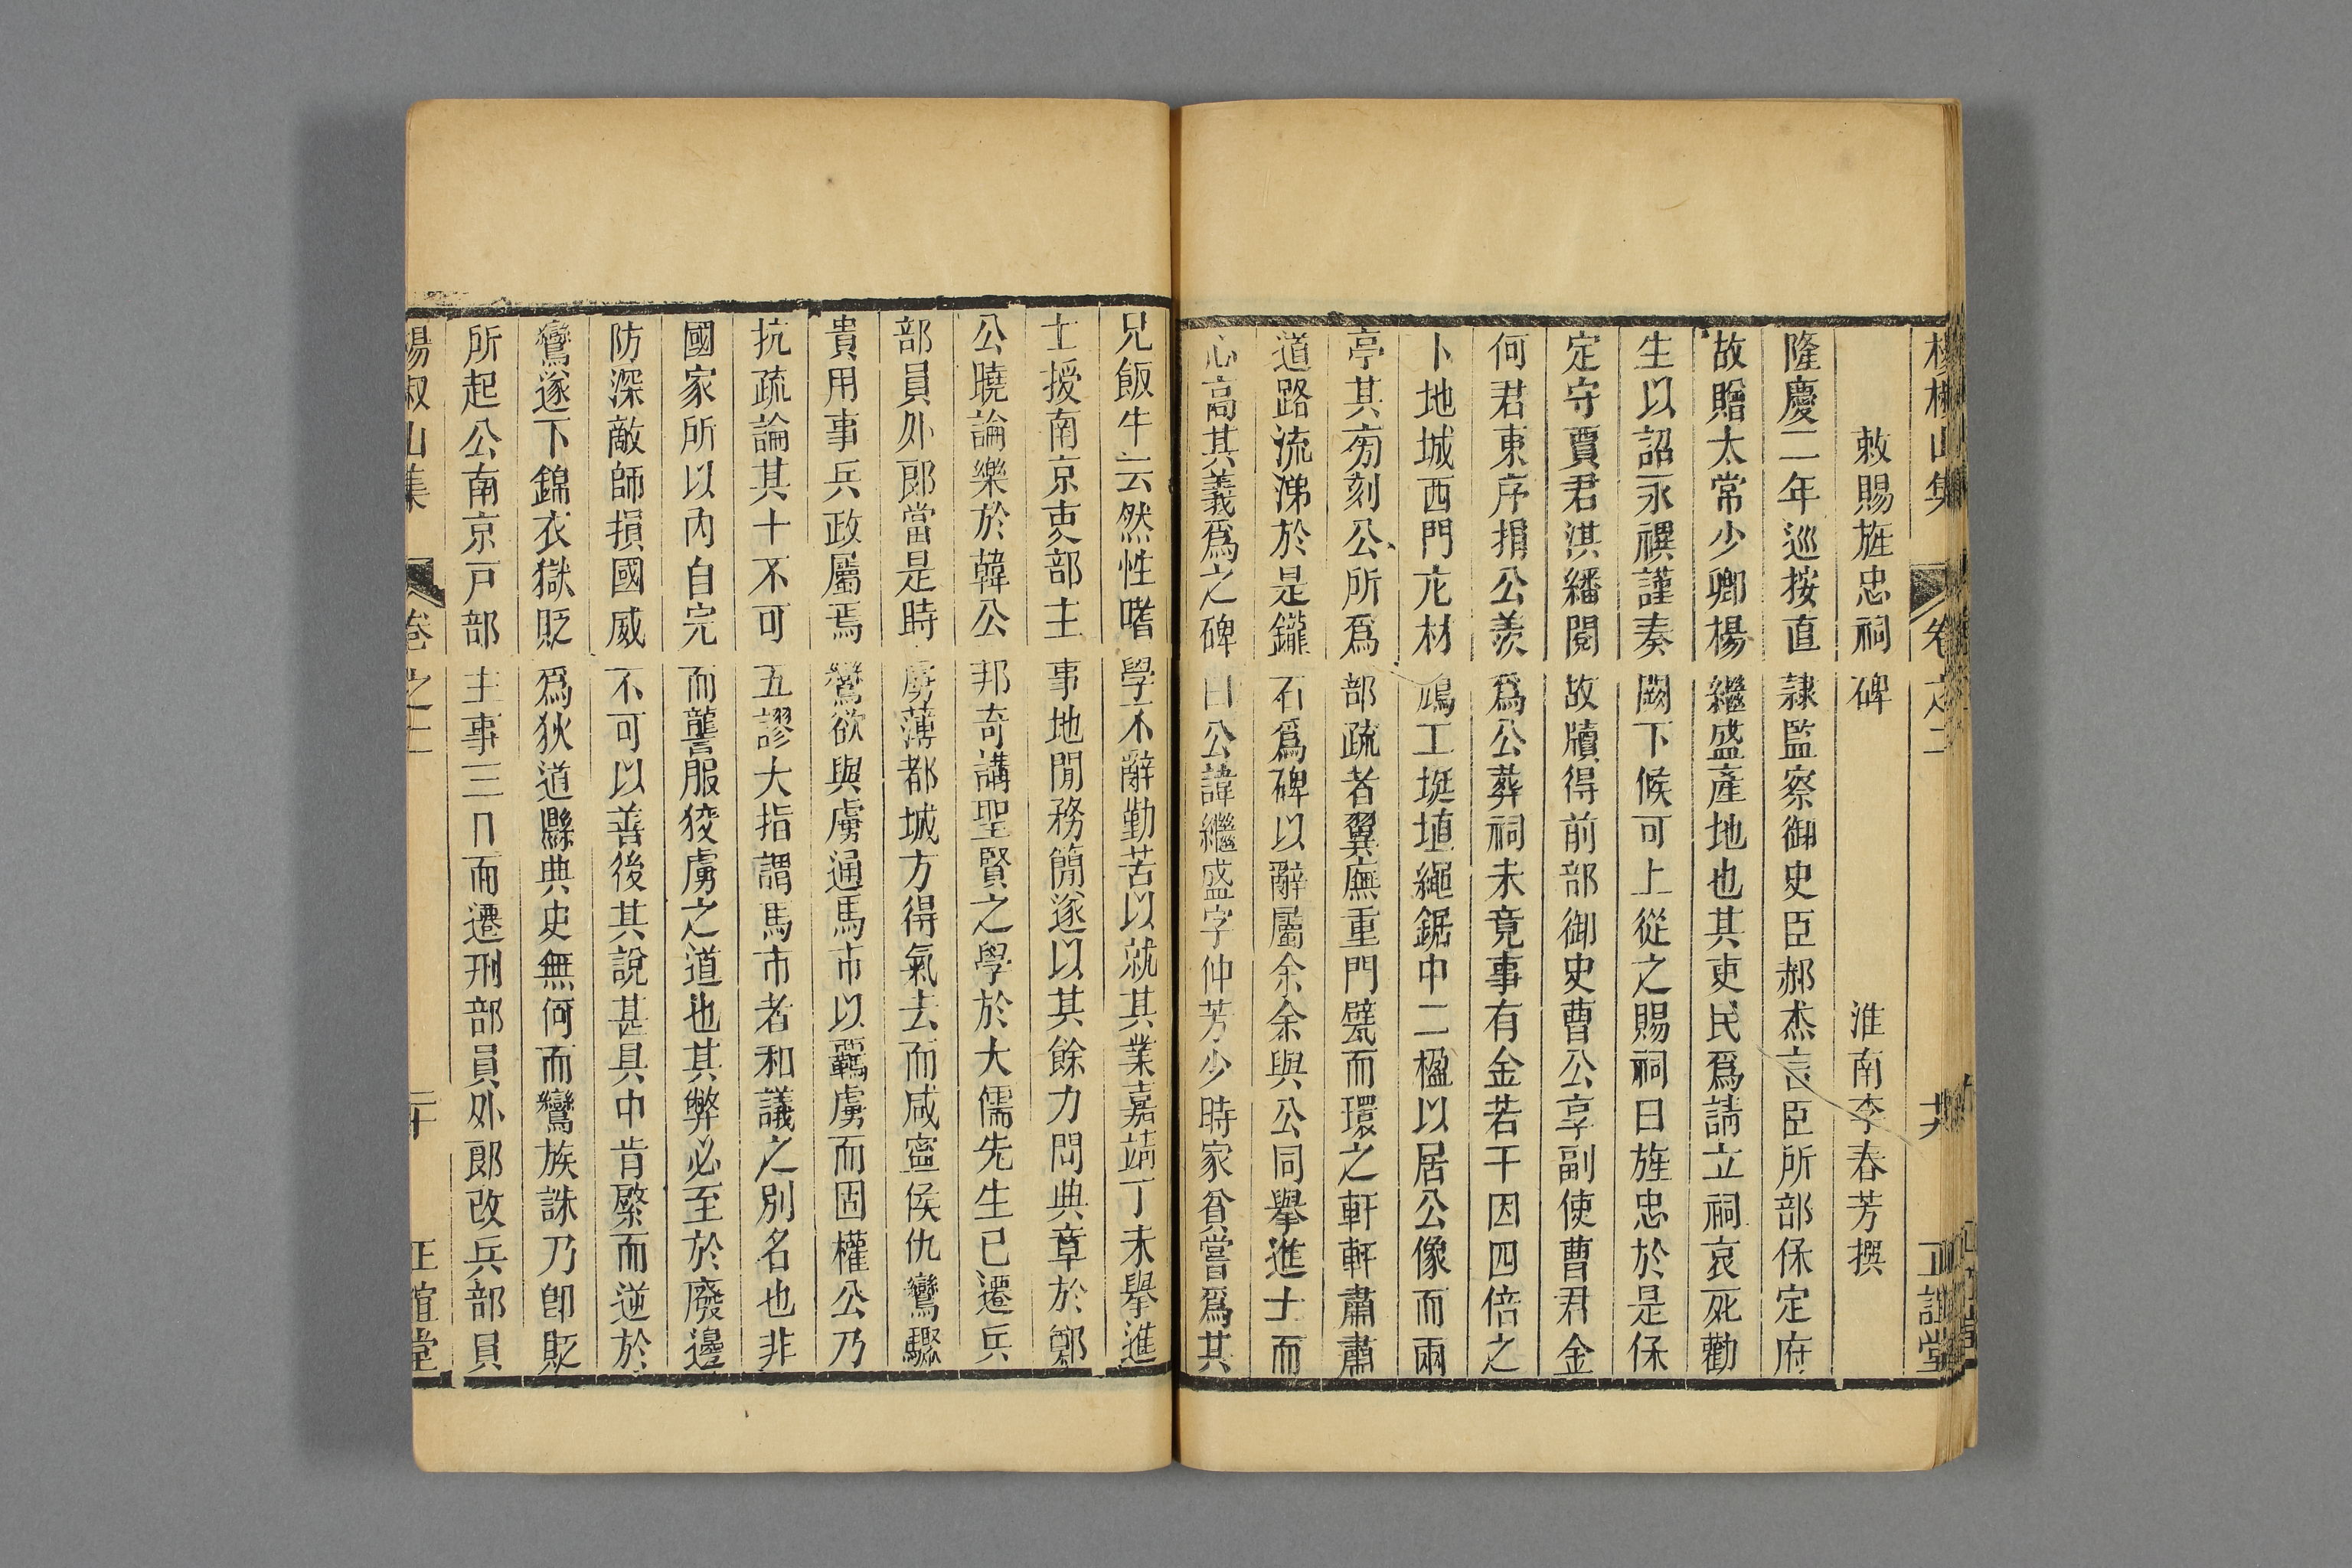 敕賜旌忠祠碑　淮南李春芳撰
隆慶二年巡按直隸監察御史臣郝杰言臣所部保定府
故贈太常少卿楊繼盛產地也其吏民爲請立祠哀死勸
生以詔永禩謹奏闕下候可上從之賜祠曰旌忠於是保
定守賈君淇繙閱故牘得前部御史曹公亨副使曹君金
何君東序捐公羨爲公葬祠未竟事有金若干因四倍之
卜地城西門庀材鳩工埏埴繩鋸中二楹以居公像而兩
亭其旁刻公所爲部疏者翼廡重門甓而環之軒軒肅肅
道路流涕於是鑨石爲碑以辭屬余余與公同舉進士而
心高其義爲之碑曰公諱繼盛字仲芳少時家貧嘗爲其
兄飯牛云然性嗜學不辭勤苦以就其業嘉靖丁未舉進
士授南京吏部主事地閒務簡遂以其餘力問典章於鄭
公曉論樂於韓公邦奇講聖賢之學於大儒先生已遷兵
部員外郎當是時虜薄都城方得氣去而咸寧侯仇鸞驟
貴用事兵政屬焉鸞欲與虜通馬市以羈虜而固權公乃
抗疏論其十不可五謬大指謂馬市者和議之別名也非
國家所以內自完而讋服狡虜之道也其弊必至於廢邊
防深敵師損國威不可以善後其說甚具中肯綮而逆於
鸞遂下錦衣獄貶爲狄道縣典史無何而鸞族誅乃卽貶
所起公南京戸部主事三月而遷刑部員外郎改兵部員
楊椒山集　卷之二　二十　正誼堂